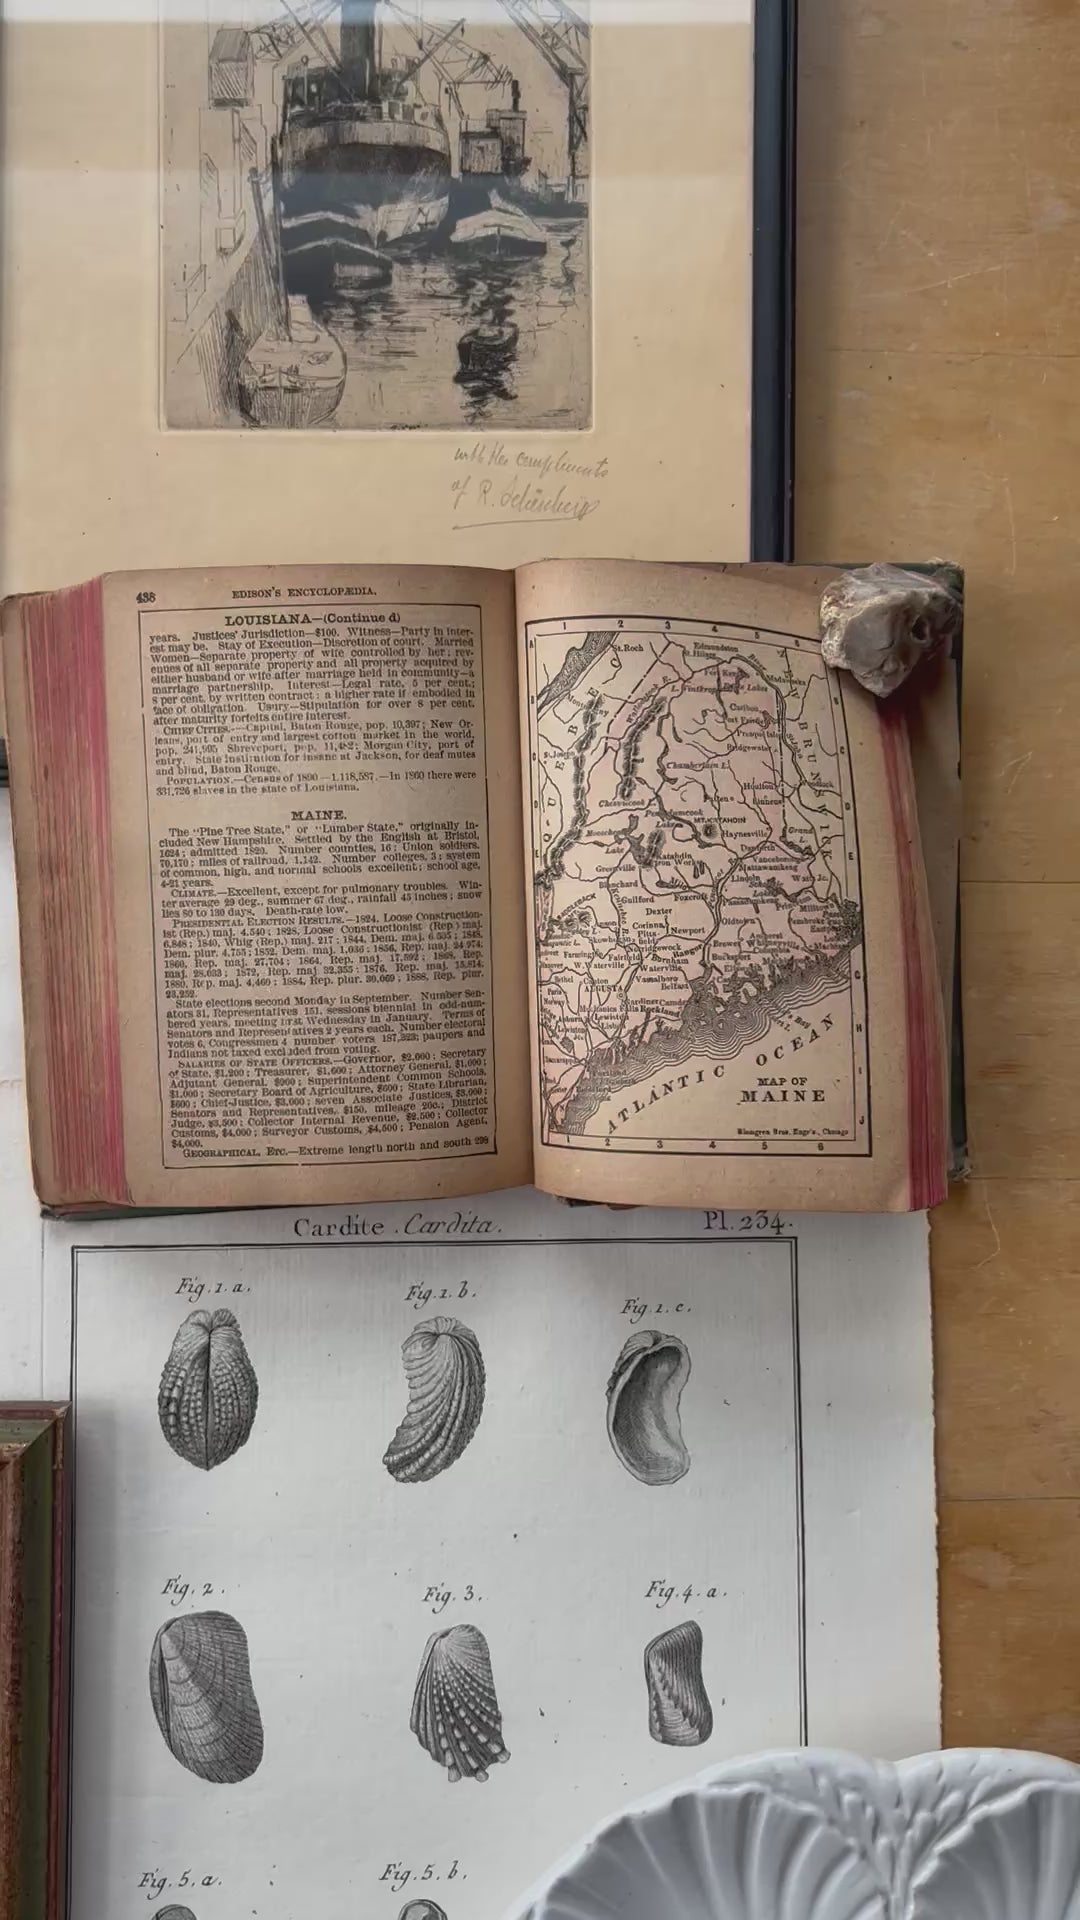 with the compliments
of R.
438
EDISON'S ENCYCLOPÆDIA.
LOUISIANA—(Continue d)
years. Justices' Jurisdiction—$100. Witness—Party in inter-
est may be. Stay of Execution—Discretion of court. Married
Women—Separate property of wife controlled by her; rev-
enues of all separate property and all property acquired by
either husband or wife after marriage held in community—a
marriage partnership. Interest—Legal rate, 5 per cent.;
8 per cent. by written contract: a higher rate if embodied in
face of obligation. Usury—Stipulation for over 8 per cent.
after maturity forfeits entire interest.
CHIEF CITIES.—Capital, Baton Rouge, pop. 10,397; New Or-
leans, port of entry and largest cotton market in the world,
pop. 241,995 Shreveport, pop. 11,482; Morgan City, port of
entry. State institution for insane at Jackson, for deaf mutes
and blind, Baton Rouge.
POPULATION.—Census of 1890—1,118,587.—In 1860 there were
331,726 slaves in the state of Louisiana.
MAINE.
The "Pine Tree State," or "Lumber State," originally in-
cluded New Hampshire. Settled by the English at Bristol,
1624; admitted 1820. Number counties, 16; Union soldiers,
70,170; miles of railroad, 1,142. Number colleges, 3; system
of common, high, and normal schools excellent; school age,
4-21 years.
CLIMATE.—Excellent, except for pulmonary troubles. Win-
ter average 29 deg., summer 67 deg., rainfall 45 inches; snow
lies 80 to 130 days. Death-rate low.
PRESIDENTIAL ELECTION RESULTS.—1824, Loose Construction-
ist (Rep.) maj. 4,540; 1828, Loose Constructionist (Rep.) maj.
6,848; 1840, Whig (Rep.) maj. 217; 1844, Dem. maj. 6,505; 1848,
Dem. plur. 4,755; 1852, Dem. maj. 1,036; 1856, Rep. maj. 24 974;
1860, Rep. maj. 27,704; 1864, Rep. maj. 17,592; 1868, Rep.
maj. 28,033; 1872, Rep. maj 32,355; 1876, Rep. maj. 15,814,
1880, Rep. maj. 4,460; 1884, Rep. plur. 20,069; 1888, Rep. plur.
23,252.
State elections second Monday in September. Number Sen-
ators 31, Representatives 151, sessions biennial in odd-num-
bered years, meeting first Wednesday in January. Terms of
Senators and Representatives 2 years each. Number electoral
votes 6, Congressmen 4 number voters 187,323; paupers and
Indians not taxed excluded from voting.
SALARIES OF STATE OFFICERS.—Governor, $2,000; Secretary
of State, $1,200; Treasurer, $1,600; Attorney General, $1,000;
Adjutant General, $900; Superintendent Common Schools,
$1,000; Secretary Board of Agriculture, $600; State Librarian,
$600; Chief-Justice, $3,000; seven Associate Justices, $3,000;
Senators and Representatives, $150, mileage 20c.; District
Judge, $3,500; Collector Internal Revenue, $2,500; Collector
Customs, $4,000; Surveyor Customs, $4,500; Pension Agent,
$4,000.
GEOGRAPHICAL, ETC.—Extreme length north and south 298
1 2 3 4 5 6
St. Roch
Edmundston
Madawaska
QUEBEC
NEW BRUNSWICK
Caribou
Presque Isle
Bridgewater
Chamberlain L.
Houlton
Woodstock
Linneus
Patten
Chesuncook L.
MT. KATAHDIN
Haynesville
Moosehead
Lake
Grand L.
Danforth
Katahdin
Iron Works
Vanceboro
Mattawamkeag
Greenville
Blanchard
Lincoln
Guilford
Foxcroft
Passadumkeag
Dexter
Oldtown
Corinna
Newport
Pitts-
field
Brewer
Bangor
Norridgewock
Burnham
Fairfield
Waterville
W. Waterville
Bucksport
Vassalboro
Belfast
Canton
AUGUSTA
Gardiner
Camden
Rockland
Mechanics Falls
Auburn
Lewiston
Lisbon
Portland
ATLANTIC OCEAN
MAP OF
MAINE
Blomgren Bros. Engr's., Chicago
1 2 3 4 5 6
Cardite . Cardita.
Pl. 234.
Fig. 1. a.
Fig. 1. b.
Fig. 1. c.
Fig. 2.
Fig. 3.
Fig. 4. a.
Fig. 5. a.
Fig. 5. b.